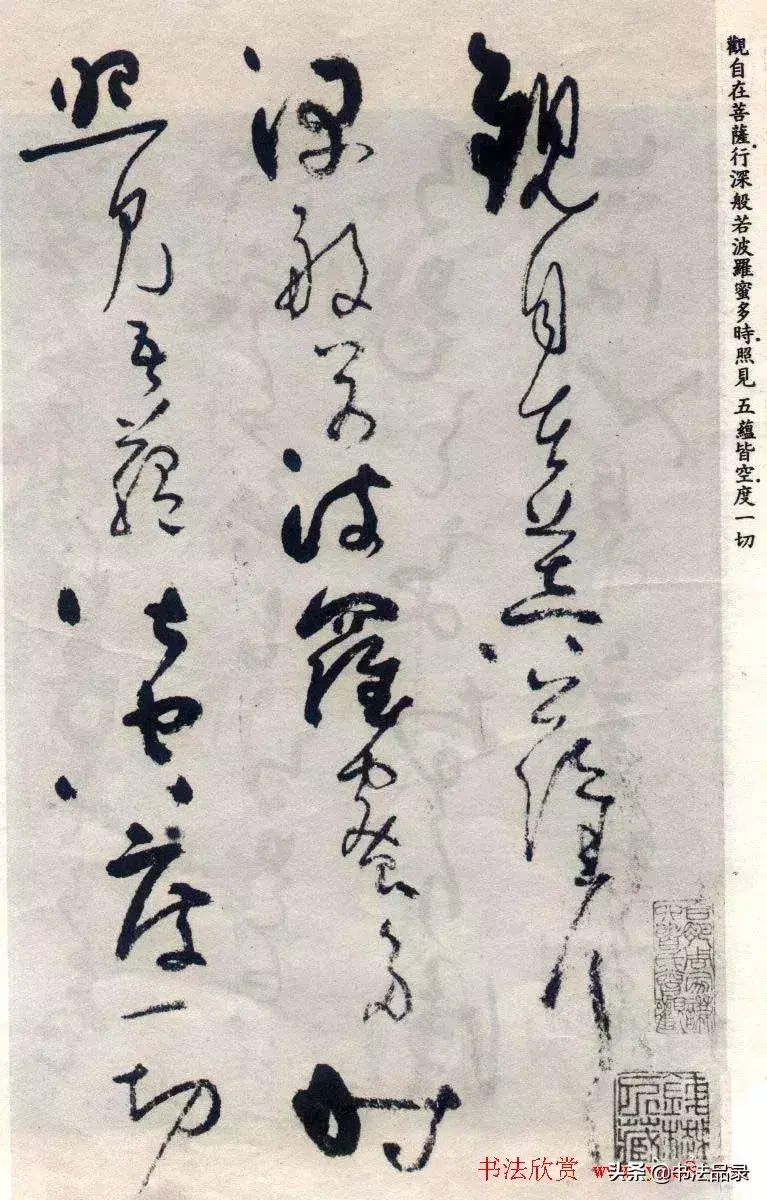 觀自在菩薩行深般若波羅蜜多時照見 五蘊皆空度一切
觀自在菩薩行
深般若波羅蜜多時
照見五蘊皆空度一切
書法欣赏 www.yac8
头条 @书法品录